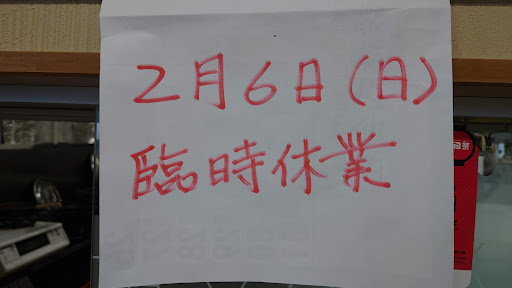 2月6日(日)
臨時休業